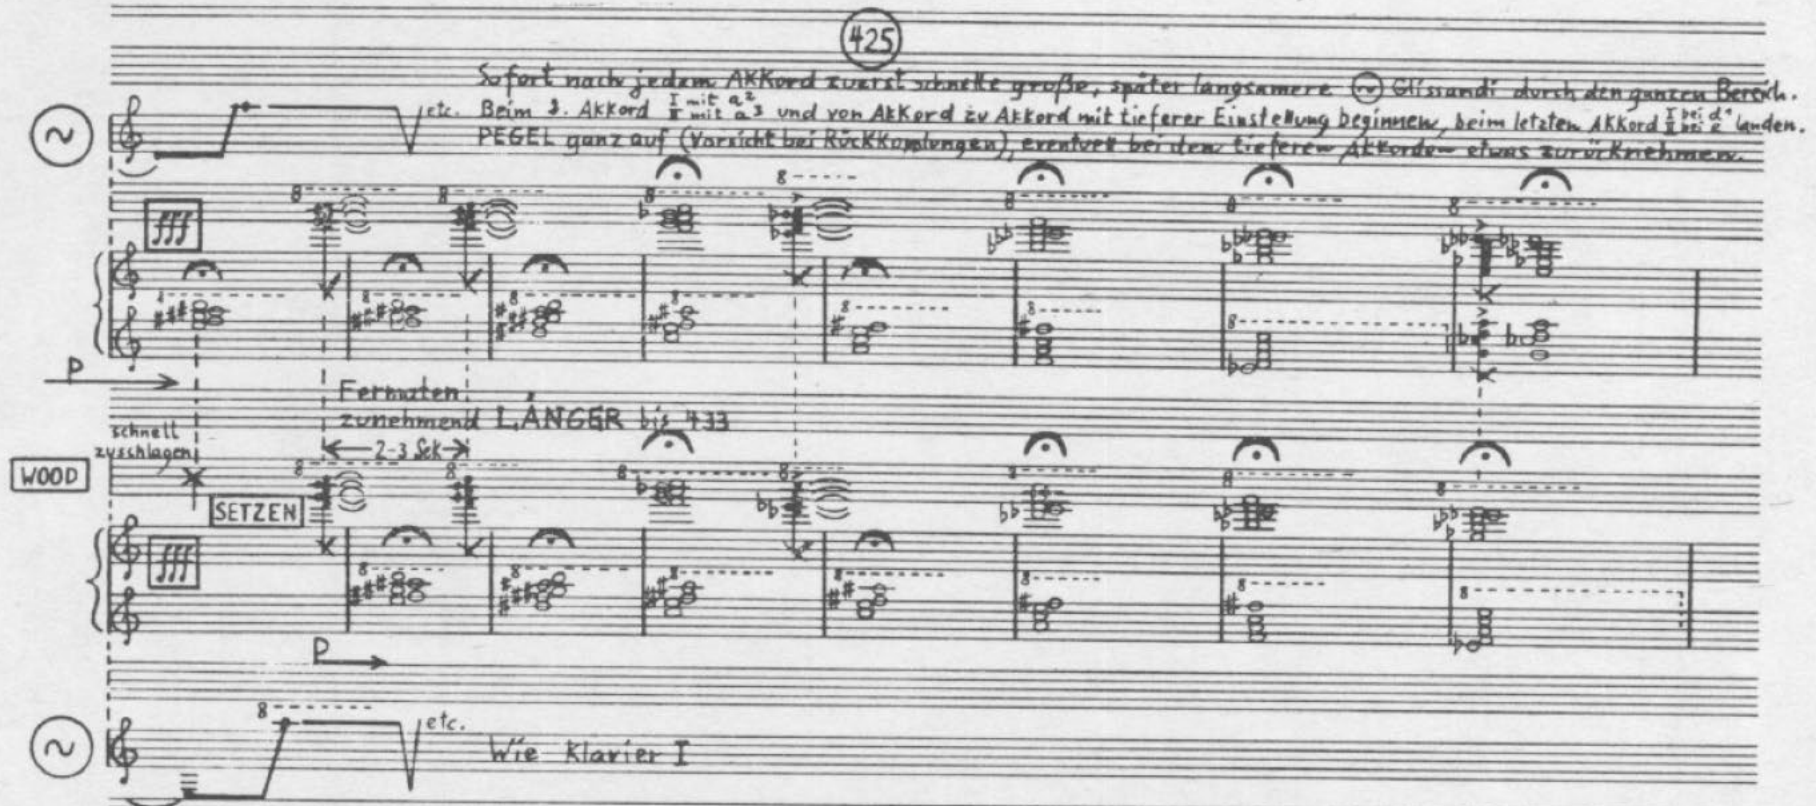 425
Sofort nach jedem Akkord zuerst schnelle große, später langsamere ~ Glissandi durch den ganzen Bereich.
etc. Beim 1. Akkord I mit a² II mit a³ und von Akkord zu Akkord mit tieferer Einstellung beginnen, beim letzten Akkord I bei d' II bei e landen.
PEGEL ganz auf (Vorsicht bei Rückkopplungen), eventuell bei den tieferen Akkorden etwas zurücknehmen.
~
fff
P
Fermaten
zunehmend LÄNGER bis 433
schnell
zuschlagen
2-3 Sek
WOOD
SETZEN
fff
P
8
etc.
~
Wie Klavier I